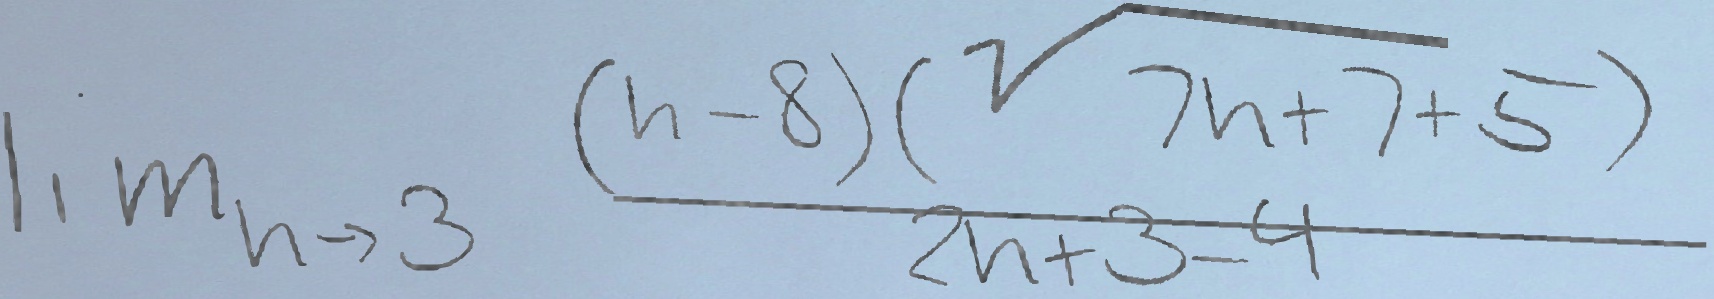 \lim_{h \to 3} \frac{(h-8)(\sqrt{7h+7}+5)}{2h+3-4}